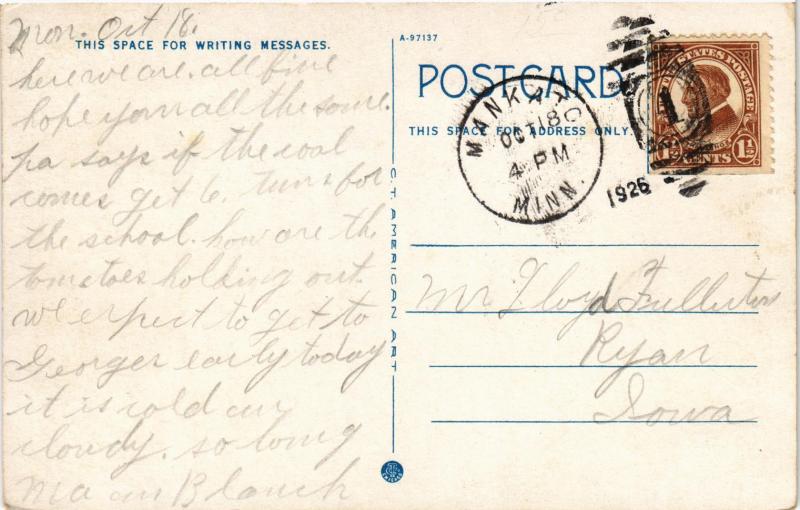 Mon. Oct 18.
THIS SPACE FOR WRITING MESSAGES.
here we are. all fine
hope you all the same.
pa says if the coal
comes get 6. tuns for
the school. how are the
tomatoes holding out.
we expect to get to
Georges early today
it is cold an
cloudy. so long
Ma an Blanch
C. T. AMERICAN ART
A-97137
POST CARD
THIS SPACE FOR ADDRESS ONLY.
MANKATO
OCT 18
4 PM
MINN.
1926
1
UNITED STATES POSTAGE
1½ CENTS 1½
Mr Floyd Fullerton
Ryan
Iowa